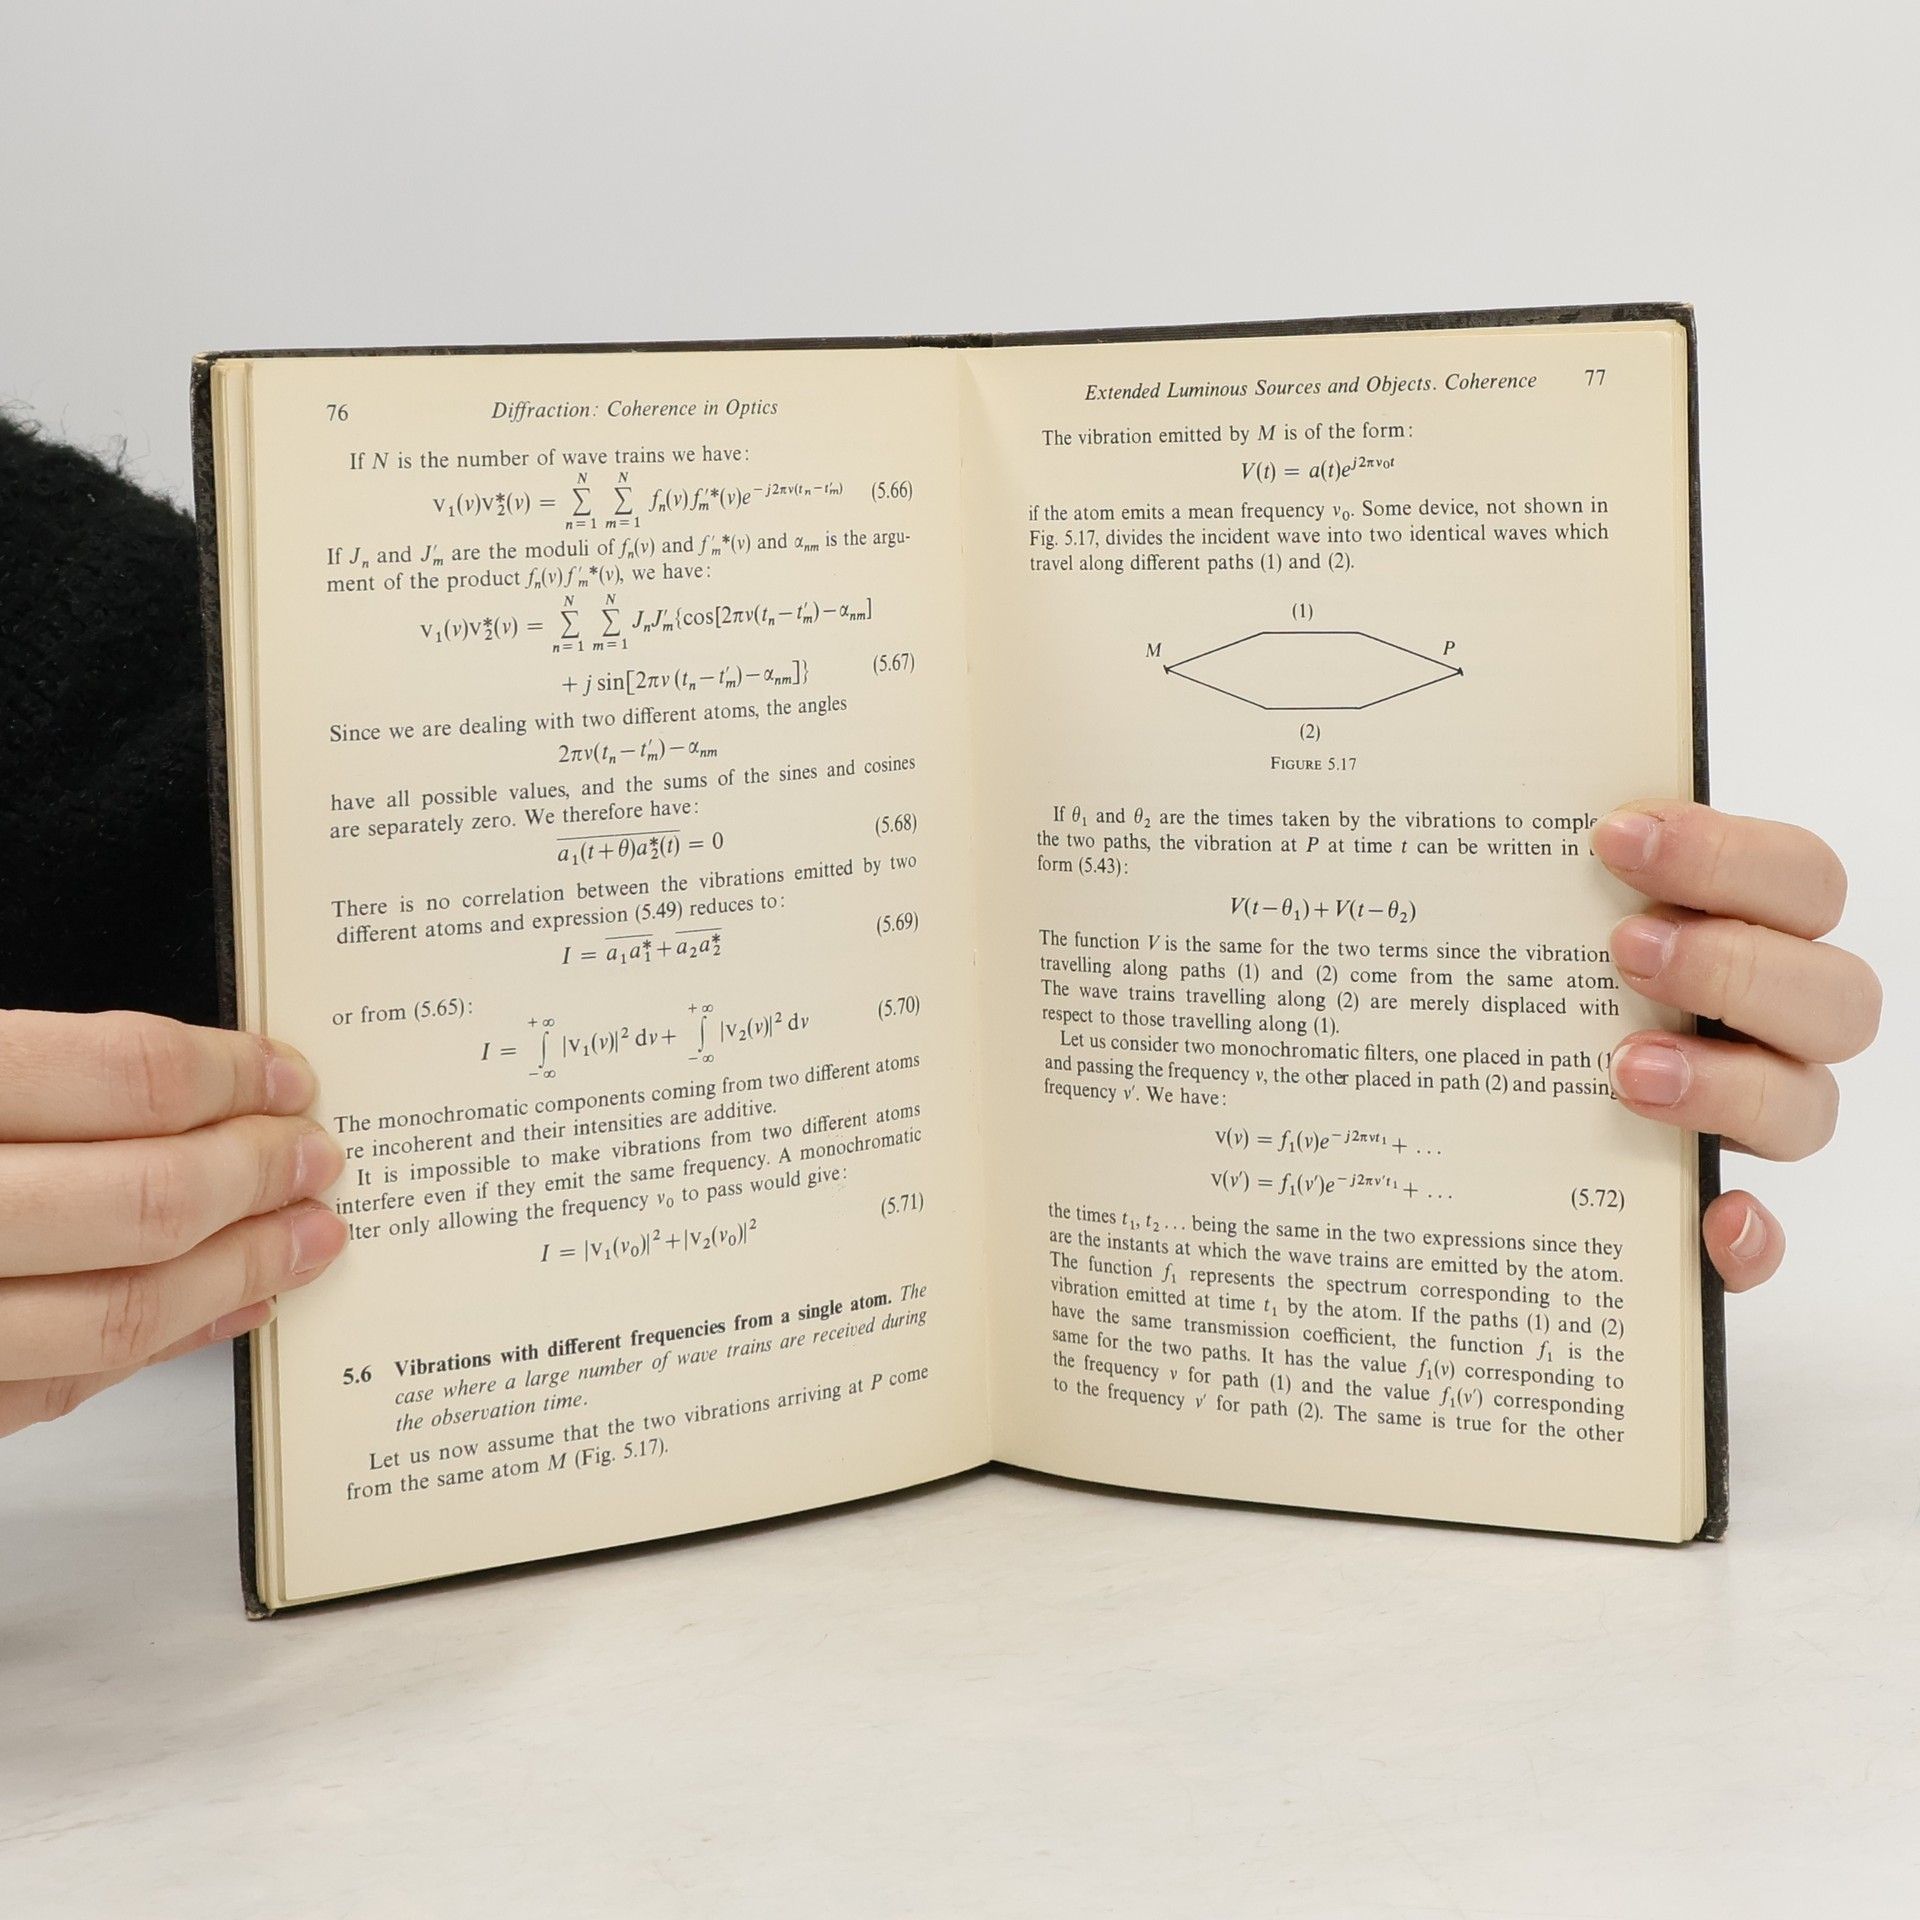 76 Diffraction: Coherence in Optics
If N is the number of wave trains we have:
v₁(ν)v₂*(ν) = N∑n=1 N∑m=1 fₙ(ν)f′ₘ*(ν)e^−j2πν(tₙ−t′ₘ) (5.66)
If Jₙ and J′ₘ are the moduli of fₙ(ν) and f′ₘ*(ν) and αₙₘ is the argu-
ment of the product fₙ(ν)f′ₘ*(ν), we have:
v₁(ν)v₂*(ν) = N∑n=1 N∑m=1 JₙJ′ₘ{cos[2πν(tₙ−t′ₘ)−αₙₘ]
+j sin[2πν(tₙ−t′ₘ)−αₙₘ]} (5.67)
Since we are dealing with two different atoms, the angles
2πν(tₙ−t′ₘ)−αₙₘ
have all possible values, and the sums of the sines and cosines
are separately zero. We therefore have:
a₁(t+θ)a₂*(t) = 0 (5.68)
There is no correlation between the vibrations emitted by two
different atoms and expression (5.49) reduces to:
I = a₁a₁*+a₂a₂* (5.69)
or from (5.65):
I = +∞∫−∞ |v₁(ν)|² dν+ +∞∫−∞ |v₂(ν)|² dν (5.70)
The monochromatic components coming from two different atoms
re incoherent and their intensities are additive.
It is impossible to make vibrations from two different atoms
interfere even if they emit the same frequency. A monochromatic
lter only allowing the frequency ν₀ to pass would give:
I = |v₁(ν₀)|²+|v₂(ν₀)|² (5.71)
5.6 Vibrations with different frequencies from a single atom. The
case where a large number of wave trains are received during
the observation time.
Let us now assume that the two vibrations arriving at P come
from the same atom M (Fig. 5.17).
Extended Luminous Sources and Objects. Coherence 77
The vibration emitted by M is of the form:
V(t) = a(t)e^j2πν₀t
if the atom emits a mean frequency ν₀. Some device, not shown in
Fig. 5.17, divides the incident wave into two identical waves which
travel along different paths (1) and (2).
(1)
M P
(2)
FIGURE 5.17
If θ₁ and θ₂ are the times taken by the vibrations to comple
the two paths, the vibration at P at time t can be written in
form (5.43):
V(t−θ₁)+V(t−θ₂)
The function V is the same for the two terms since the vibration
travelling along paths (1) and (2) come from the same atom.
The wave trains travelling along (2) are merely displaced with
respect to those travelling along (1).
Let us consider two monochromatic filters, one placed in path (1
and passing the frequency ν, the other placed in path (2) and passing
frequency ν′. We have:
v(ν) = f₁(ν)e^−j2πνt₁+ ...
v(ν′) = f₁(ν′)e^−j2πν′t₁+ ... (5.72)
the times t₁, t₂... being the same in the two expressions since they
are the instants at which the wave trains are emitted by the atom.
The function f₁ represents the spectrum corresponding to the
vibration emitted at time t₁ by the atom. If the paths (1) and (2)
have the same transmission coefficient, the function f₁ is the
same for the two paths. It has the value f₁(ν) corresponding to
the frequency ν for path (1) and the value f₁(ν′) corresponding
to the frequency ν′ for path (2). The same is true for the other